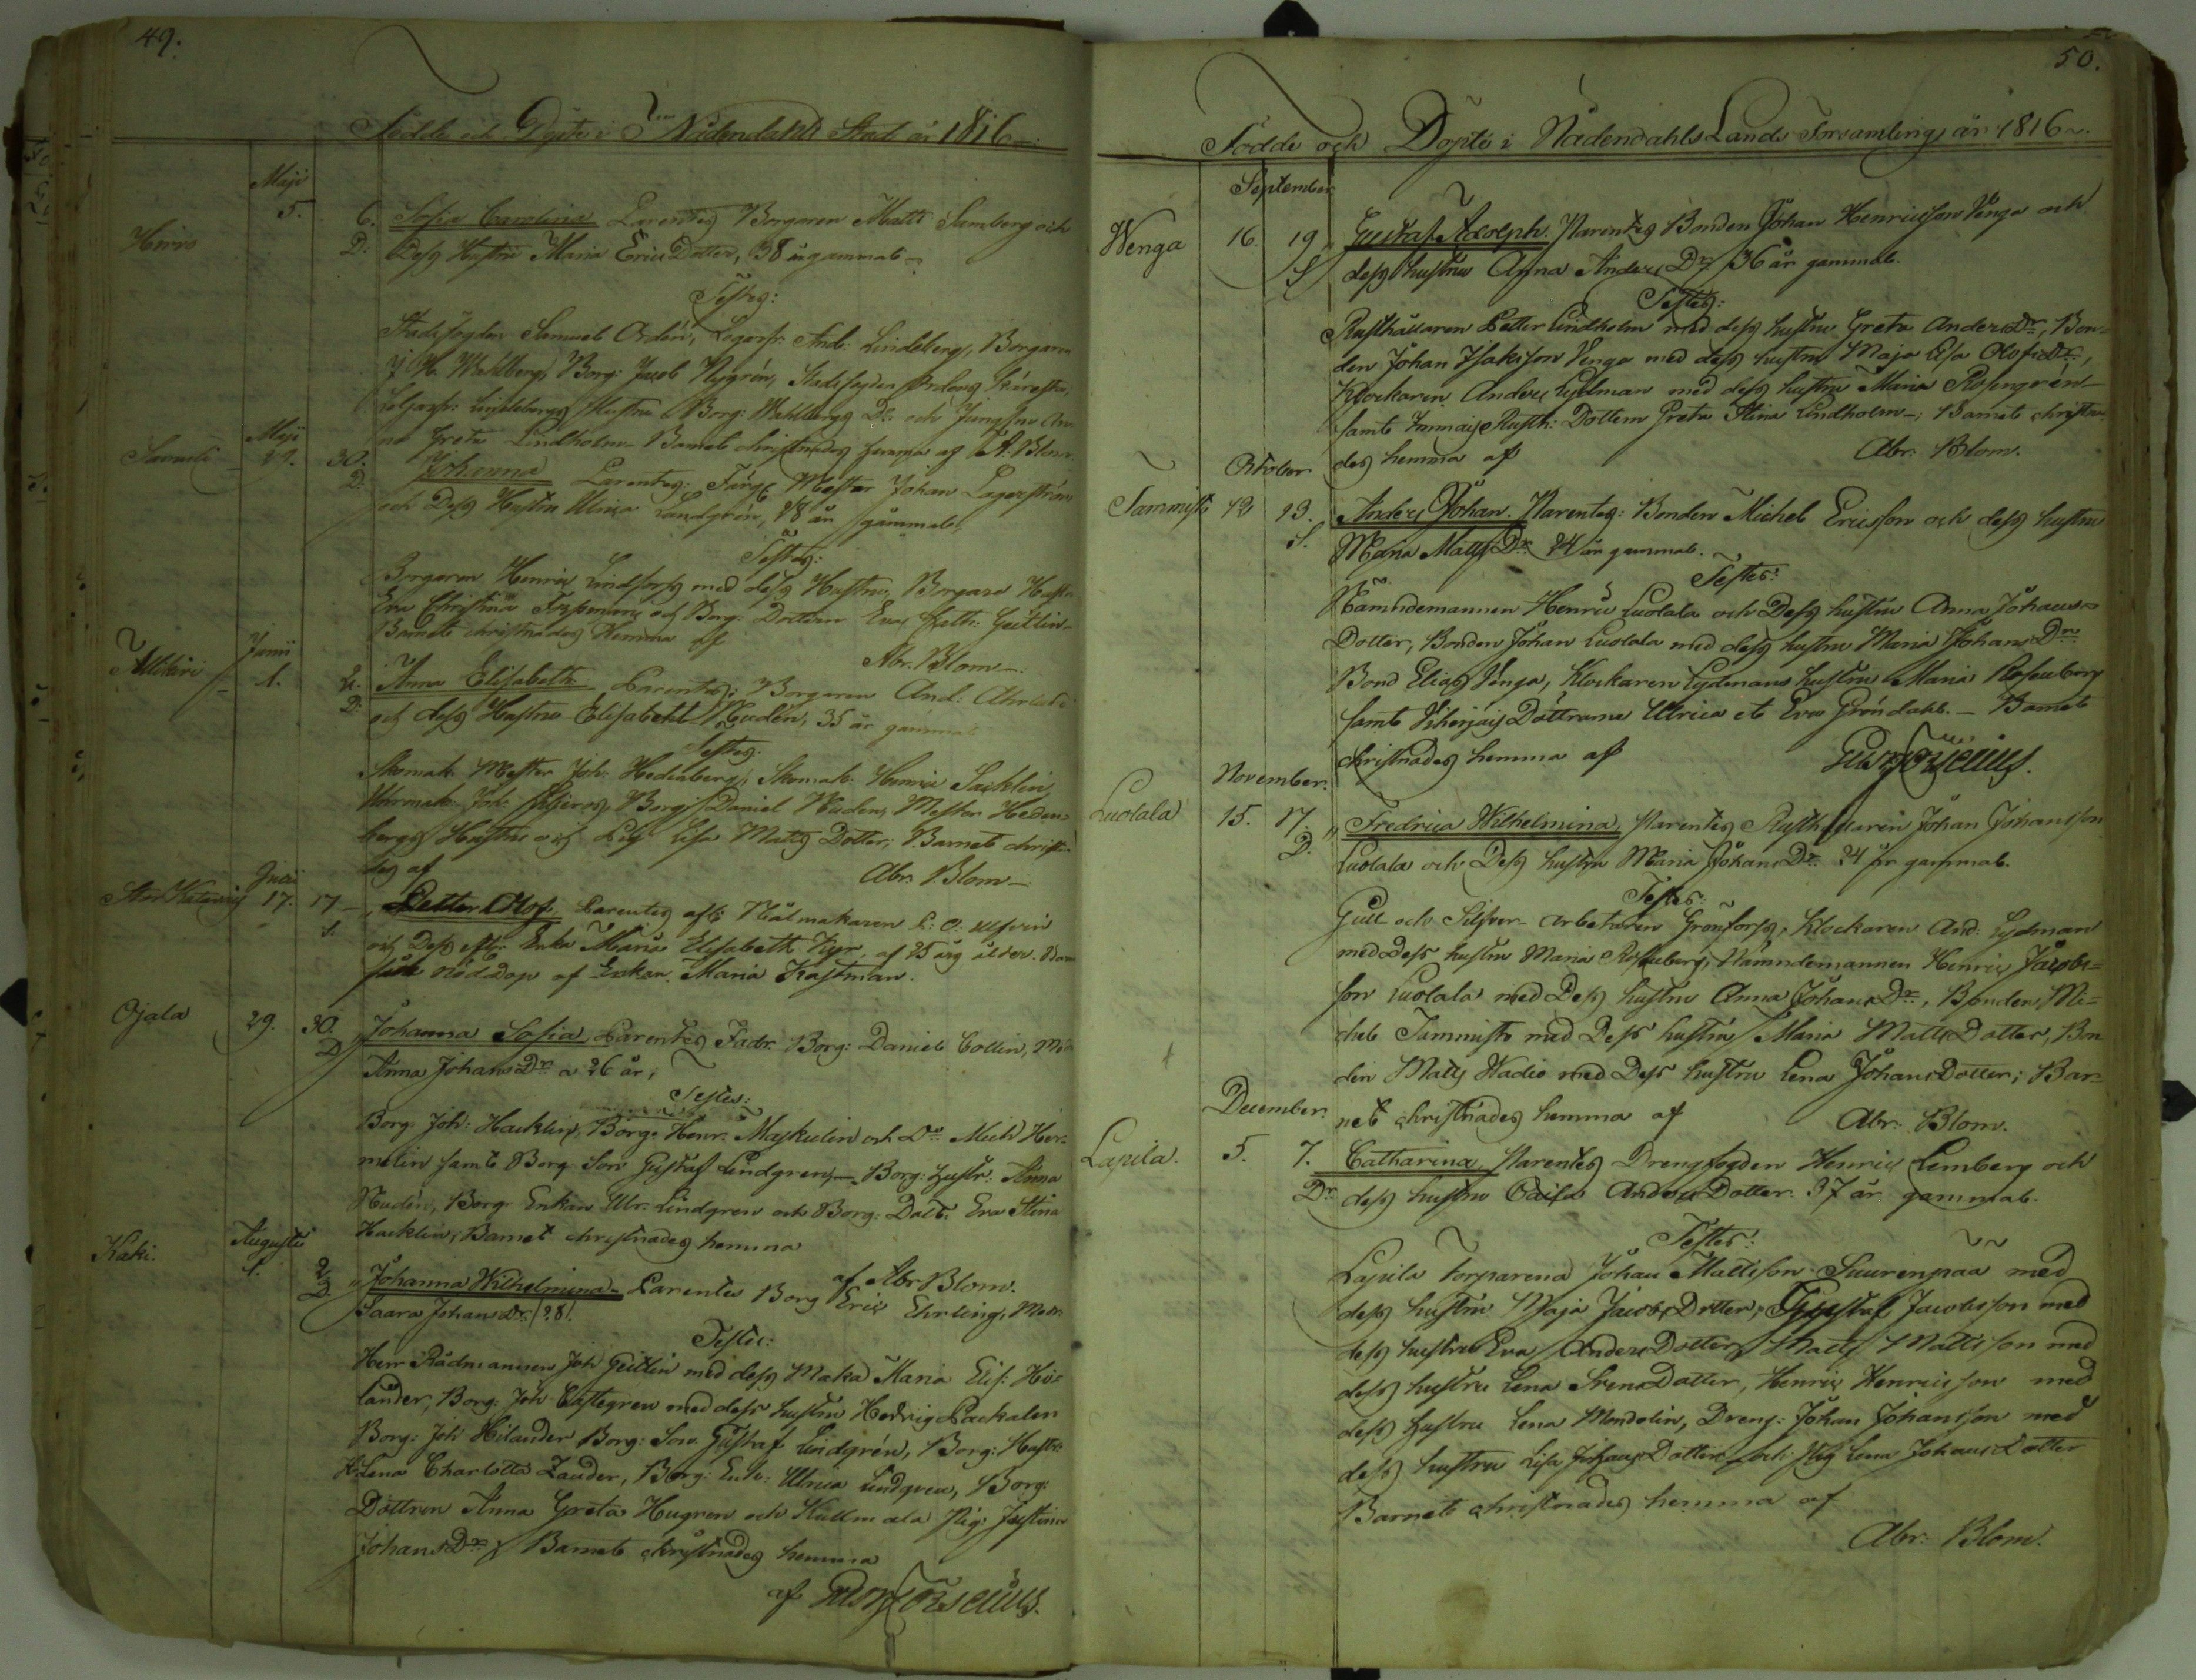 49.
Födde och Döpte i Nådendahls Stad år 1816
Maji
5. 6. Sofia Carolina Parentes Borgaren Matts Samberg och
D: Dess Hustru Maria Erics Dotter, 38 år gammal
Testes:
Stadsfogden Samuel And: Lindeberg, Borgaren
Wahlberg, Borg: Jacob Nygrén, Stadsfogden
Lindebergs Hustru Borg: Wahlbergs Dr: och Jungfru An
na Greta Lindholm Barnet christnades hemma af A. Blom
Maji
29. 30. Johanna Parentes: Färg: Mäster Johan Lagerström
D. och Dess Hustru Ulrica Lundgrén, 28 år gammal,
Testes:
Borgaren Henric Lindforss med dess Hustru, Borgare Hustr
Eva Christina och Borg: Dottern Eva Cath: Geitlin
Barnet christnades hemma af
Abr. Blom
Junii
1. 2. Anna Elisabeth Parentes: Borgaren And:
D: och dess Hustru Elisabeth Nudén, 35 år gammal
Testes.
Skomak: Mäster Joh: Hedenberg, Skomak: Henric Sacklin,
Joh: Borg: Daniel Nuden, Mäster Heden
bergs Hustru och Pig Lisa Matts Dotter, Barnet christna
des af Abr. Blom
Julii
17. 17 Petter Olof. Parentes
S. och Dess Enka Maria Elisabeth af 25 års ålder. Barn
fick nöddop af Enkan Maria Kastman.
Ojala 29. 30. Johanna Sofia, Parentes Fadr. Borg: Daniel Collin, Modr
D Anna Johans Dr. a 26 år,
Testes:
Borg. Joh: Hacklin, Borg: Henr: Maskulin och Do Mich Her=
melin samt Borg Son Gustaf Lindgren, Borg: Hustr: Anna
Nudén, Borg: Enkan Ulr: Lindgren och Borg: Dott. Eva Stina
Hacklin, Barnet christnades hemma
Augusti af Abr Blom.
Kaki. 1. 2 Johanna Wilhelmina Parentes Borg Eric Ehrling, Modr:
D. Saara Johans Dr. 28.
Testes:
Herr Rådmannen Joh Geitlin med dess Maka Maria Elis: Hö=
lander, Borg: Joh Castegren med dess hustru Hedvig Packalen
Borg: Joh Hilander Borg: Son Gustaf Lindgrén, Borg: Hustr:
H: Lena Charlotta Zander, Borg: Enk: Ulrica Lindgren, Borg:
Dottren Anna Greta Hugren och Kullmala Pig: Justina
Johans Dr. Barnet christnades hemma
af
50.
Födde och Döpte i Nådendahls Lands Församling år 1816.
September
Wenga 16. 19 Gustaf Adolph. Parentes Bonden Johan Henricsson Venga och
S dess hustru Anna Anders Dr 36 år gammal.
Testes:
Rusthållaren Petter Lindholm med dess hustru Greta Anders Dr, Bon=
den Johan Isaksson Venga med dess hustru Maja Lisa Olofs Dr.,
Klockaren Anders Lydman med dess hustru Maria Rosengrén
samt Rusth: Dottern Greta Stina Lindholm; Barnet christna
des hemma af Abr. Blom.
Oktober
Tammisto 12 13. Anders Johan. Parentes: Bonden Michel Ericsson och dess hustru
S. Maria Matts Dr. 24 år gammal.
Testes:
Nämndemannen Henric Luolala och Dess hustru Anna Johans=
Dotter, Bonden Johan Luolala med dess hustru Maria Johans Dr.
Bond Elias Venga, Klockaren Lydmans hustru Maria Rosenberg
samt Döttrarna Ulrica et Eva Gröndahl. Barnet
christnades hemma af
November.
Luolala 15. 17. Fredrica Wilhelmina, Parentes Rusthållaren Johan Johansson
D. Luolala och Dess hustru Maria Johans Dr. 24 år gammal.
Testes:
Gull och Silfver arbetaren Grönforss, Klockaren And: Lydman
med Dess hustru Maria Rosenberg, Nämndemannen Henric Jacobs=
son Luolala med Dess hustru Anna Johans Dr., Bonden Mi=
chel Tammisto med Dess hustru Maria Matts Dotter, Bon
den Matts Wadio med Dess hustru Lena Johans Dotter; Bar=
net christnades hemma af Abr. Blom.
December.
Lapila. 5. 7. Catharina, Parentes Drengfogden Henric Lemberg och
Dr dess hustru Caisa Anders Dotter. 37 år gammal.
Testes:
Lapila Torparena Johan Mattsson Suurenpää med
dess hustru Maja Jacobs Dotter, Gustaf Jacobsson med
dess hustru Eva Anders Dotter Matts Mattsson med
dess hustru Lena Svens Dotter, Henric Henricsson med
dess hustru Lena Mondolin, Dreng: Johan Johansson med
dess hustru Lisa Johans Dotter och Pig Lena Johans Dotter
Barnet christnades hemma af
Abr. Blom.